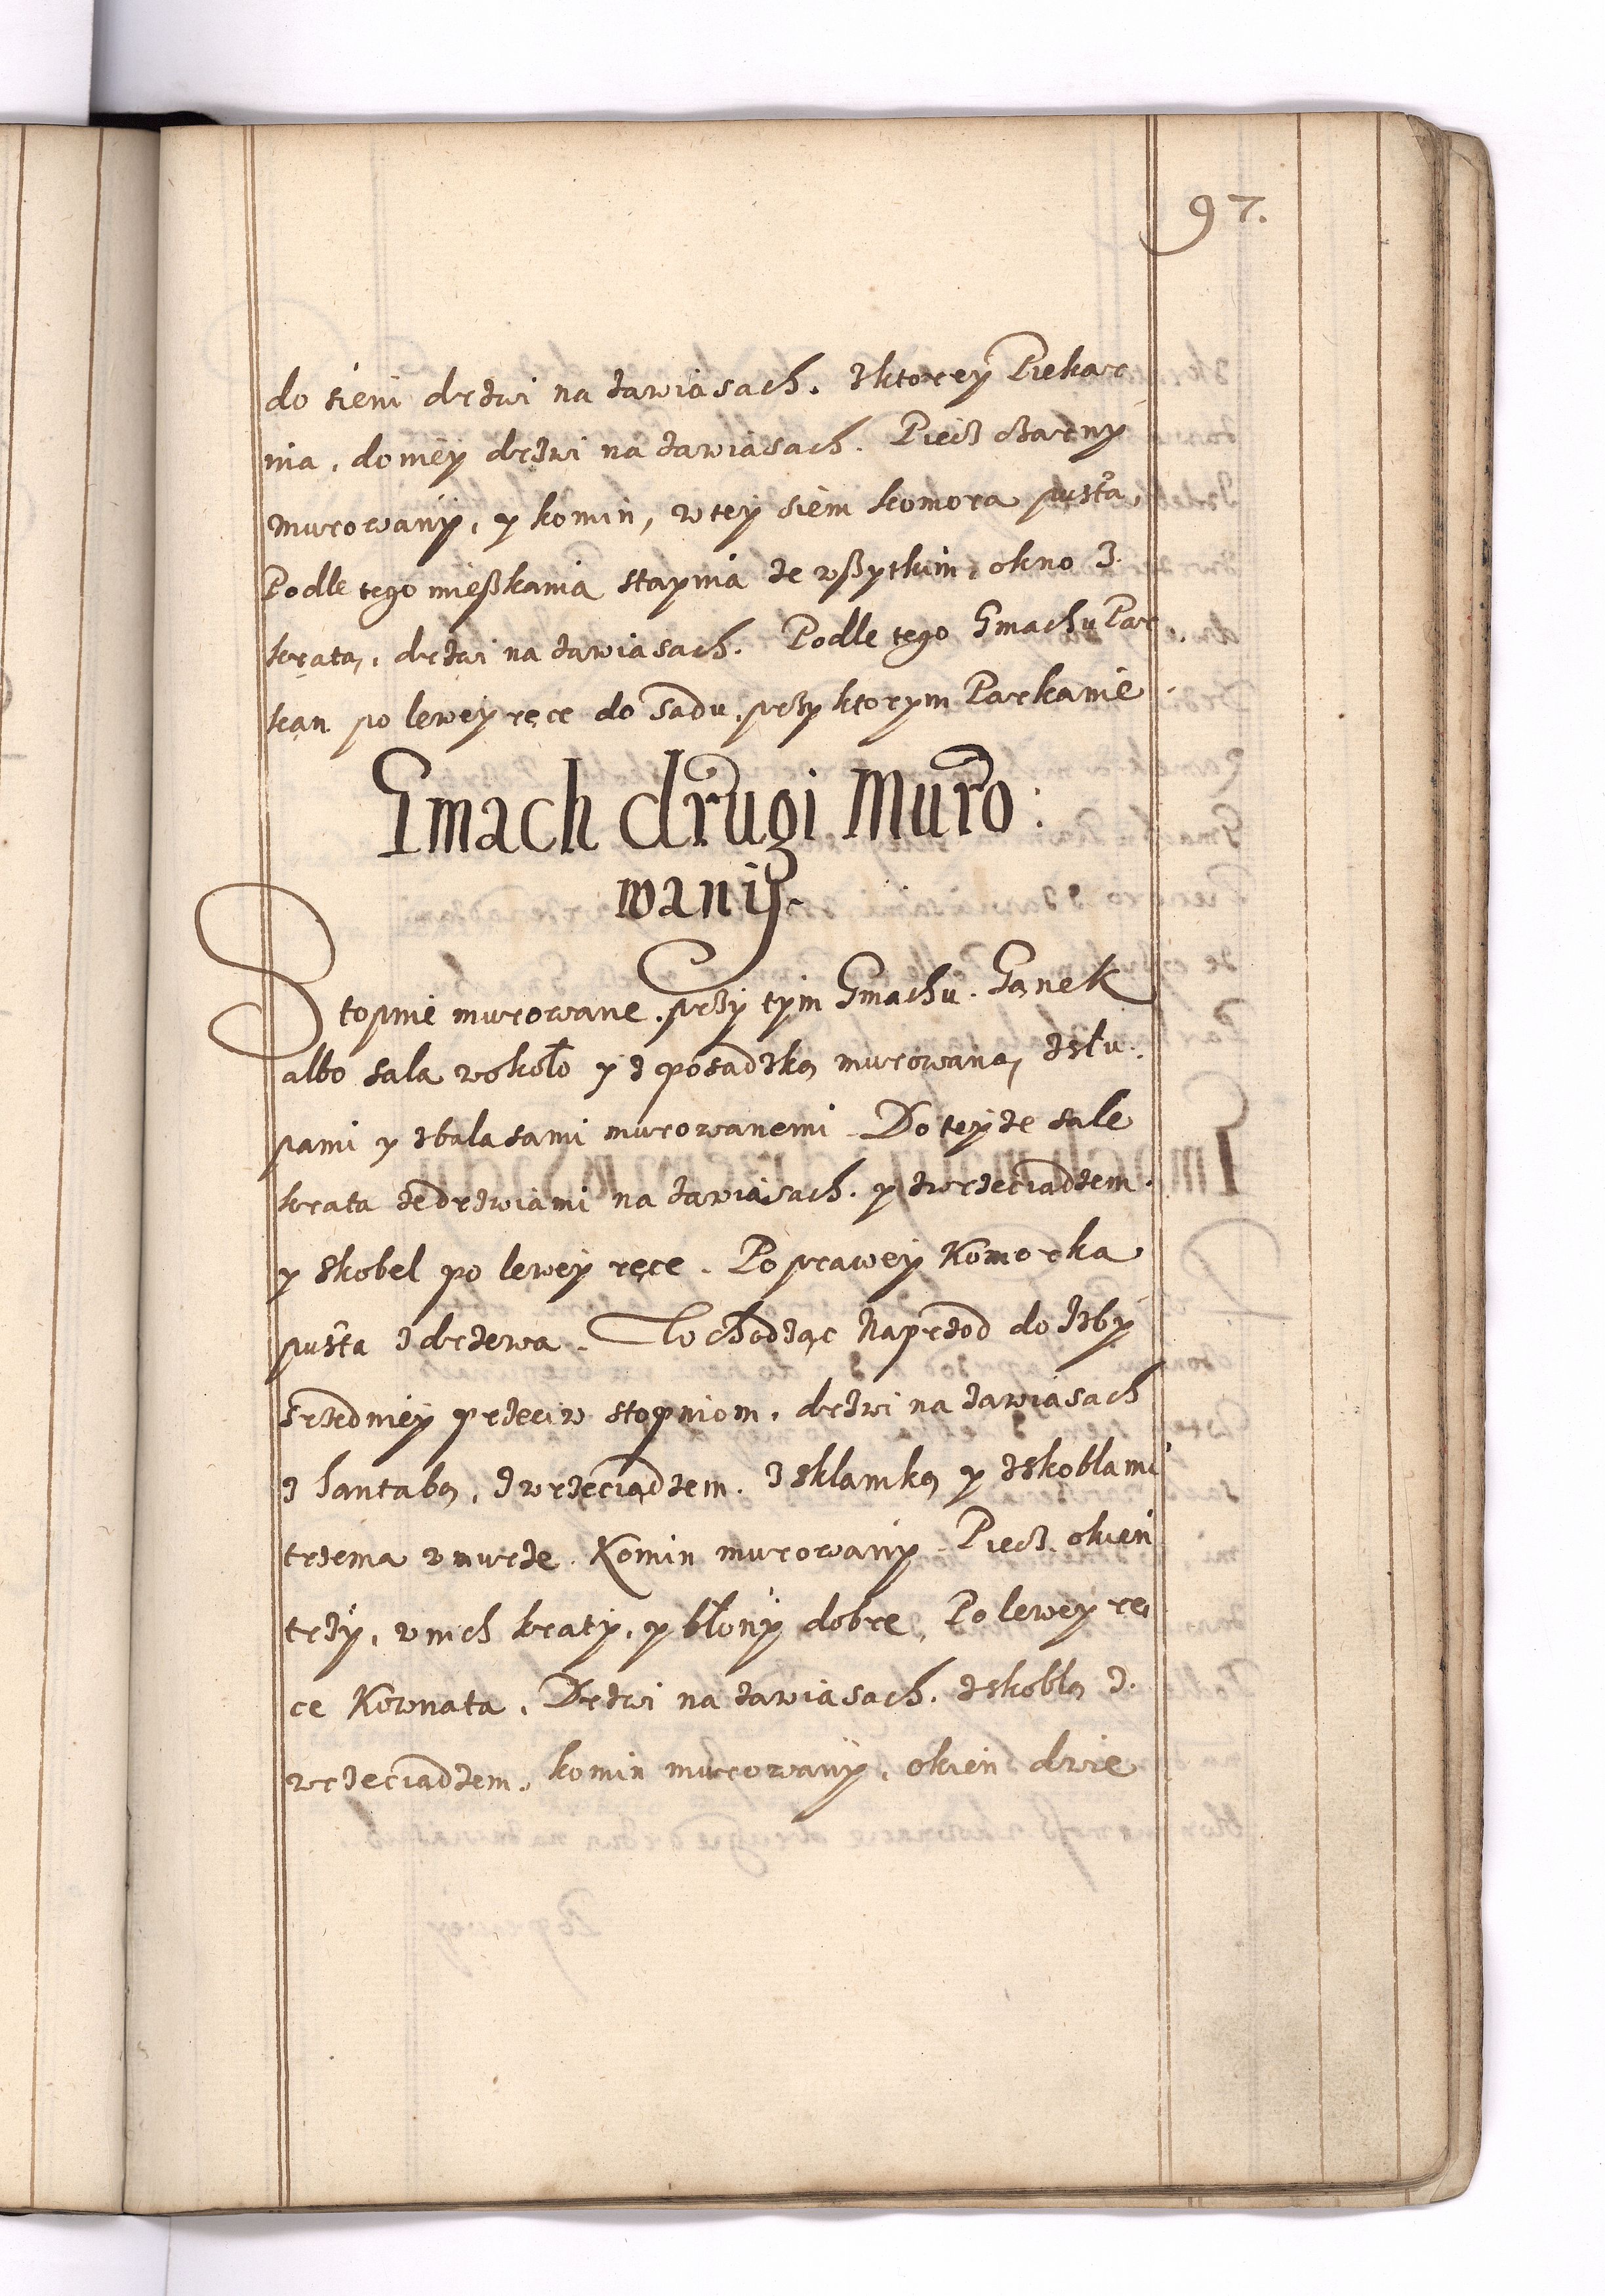 97.
do sieni drzwi na zawiasach. z ktorey Piekar
nia, do niey drzwi na zawiasach. Piecß cßarny
murowany, y komin, w tey sieni komora pusta,
Podle tego mießkania staynia ze wßytkim, okno z
kratą, drzwi na zawiasach. Podle tego Gmachu Par
kan po lewey ręce do Sadu, przy ktorym Parkanie
Gmach drugi Muro:
wany.
Stopnie murowane przy tym Gmachu. Ganek
albo sala wokoło y z posadzką murowaną, z słu:
pami y z balasami murowanemi. Do teyze sale
krata ze drzwiami na zawiasach, y z wrzeciadzem.
y skobel po lewey ręce. Po prawey Komorka
pusta z drzewa. Wchodząc Naprzod do Izby
srzedniey przeciw stopniom, drzwi na zawiasach
z hantabą, z wrzeciądzem. z klamką y z skoblami
trzema w murze. Komin murowany. Piecß. okien
trzy, w nich kraty, y błony dobre, Po lewey rę
ce Kownata, Drzwi na zawiasach, z skoblą z
wrzeciadzem, komin murowany, okien dwie